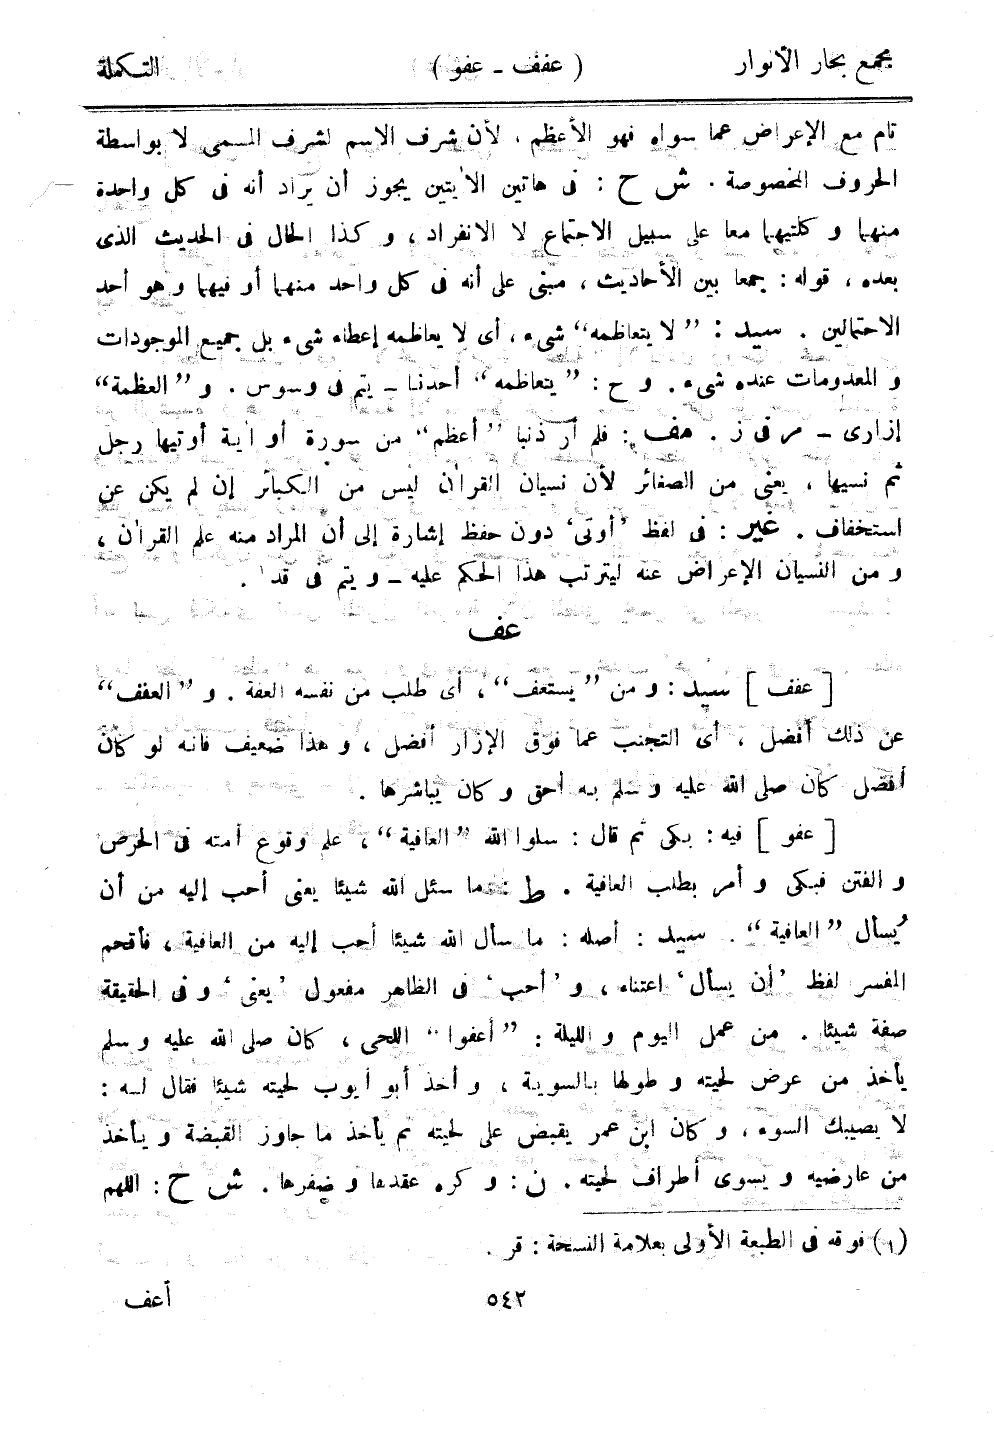 مجمع بحار الأنوار ( عفف ـ عفو ) التكملة
تام مع الإعراض عما سواه فهو الأعظم ، لأن شرف الاسم لشرف المسمى لا بواسطة
الحروف المخصوصة . ش ح : فى هاتين الاٰيتين يجوز أن يراد أنه فى كل واحدة
منهما و كلتيهما معا على سبيل الاجتماع لا الانفراد ، و كذا الحال فى الحديث الذى
بعده ، قوله : جمعا بين الأحاديث ، مبنى على أنه فى كل واحد منهما أو فيهما و هو أحد
الاحتمالين . سيد : ”لا يتعاظمه“ شىء ، أى لا يعاظمه إعطاء شىء بل جميع الموجودات
و المعدومات عنده شىء . و ح : ”يتعاظمه“ أحدنا ـ يتم فى وسوس . و ”العظمة“
إزارى ـ مر فى ز . مف : فلم أر ذنبا ”أعظم“ من سورة أو اٰية أوتيها رجل
ثم نسيها ، يعنى من الصغائر لأن نسيان القراٰن ليس من الكبائر إن لم يكن عن
استخفاف . غير : فى لفظ ’أوتى‘ دون حفظ إشارة إلى أن المراد منه علم القراٰن ،
و من النسيان الإعراض عنه ليترتب هذا الحكم عليه ـ و يتم فى قد١ .
عف
[ عفف ] سيد : و من ”يستعفف“ ، أى طلب من نفسه العفة . و ”العفف“
عن ذلك أفضل ، أى التجنب عما فوق الإزار أفضل ، و هذا ضعيف فانه لو كان
أفضل كان صلى الله عليه و سلم به أحق و كان يباشرها .
[ عفو ] فيه : بكى ثم قال : سلوا الله ”العافية“ ، علم وقوع أمته فى الحرص
و الفتن فبكى و أمر بطلب العافية . ط : ما سئل الله شيئا يعنى أحب إليه من أن
يُسأل ”العافية“ . سيد : أصله : ما سأل الله شيئا أحب إليه من العافية ، فأقحم
المفسر لفظ ’أن يسأل‘ اعتناء ، و ’أحب‘ فى الظاهر مفعول ’يعنى‘ و فى الحقيقة
صفة شيئا . من عمل اليوم و الليلة : ”أعفوا“ اللحى ، كان صلى الله عليه و سلم
يأخذ من عرض لحيته و طولها بالسوية ، و أخذ أبو أيوب لحيته شيئا فقال له :
لا يصيبك السوء ، و كان ابن عمر يقبض على لحيته ثم يأخذ ما جاوز القبضة و يأخذ
من عارضيه و يسوى أطراف لحيته . ن : و كره عقدها و ضفرها . ش ح : اللهم
(١) فوقه فى الطبعة الأولى بعلامة النسخة : قر .
٥٤٢ أعف